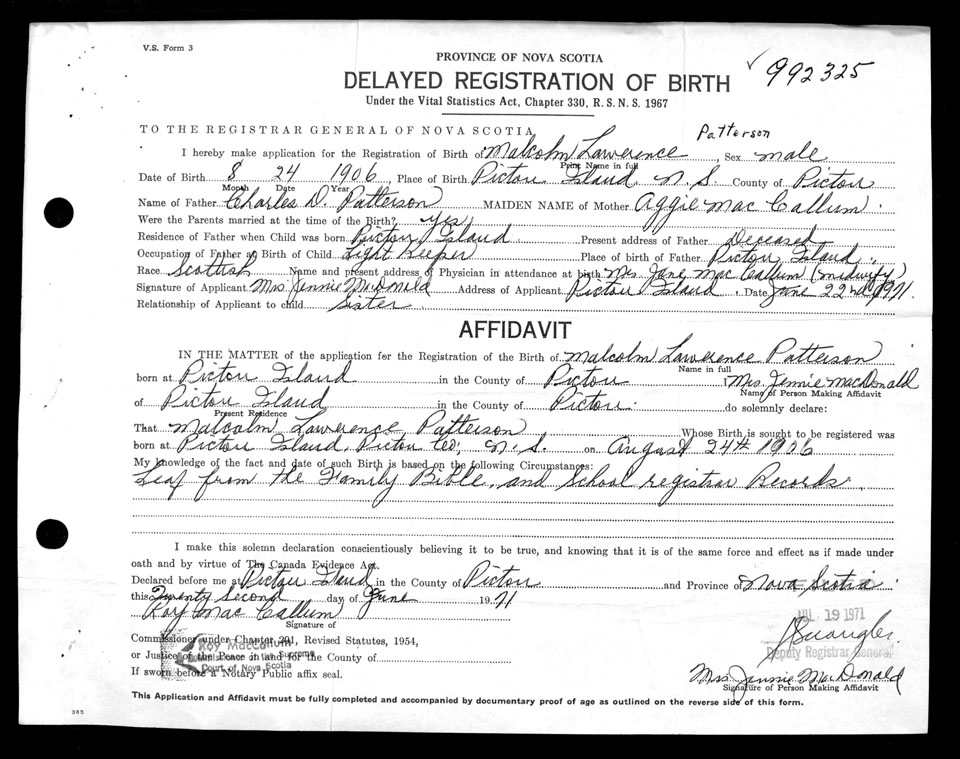 V.S. Form 3
PROVINCE OF NOVA SCOTIA
✓ 992325
DELAYED REGISTRATION OF BIRTH
Under the Vital Statistics Act, Chapter 330, R.S.N.S. 1967
TO THE REGISTRAR GENERAL OF NOVA SCOTIA
Patterson
I hereby make application for the Registration of Birth of Malcolm Lawerence, Sex male
Print Name in full
Date of Birth 8 24 1906, Place of Birth Pictou Island, N.S County of Pictou
Month Date Year
Name of Father Charles D. Patterson MAIDEN NAME of Mother Aggie Mac Callum.
Were the Parents married at the time of the Birth? yes
Residence of Father when Child was born Pictou Island Present address of Father Deceased
Occupation of Father at Birth of Child Light Keeper Place of birth of Father Pictou Island.
Race Scottish Name and present address of Physician in attendance at birth Mrs Jane Mac Callum (midwify)
Signature of Applicant Mrs Jennie McDonald Address of Applicant Pictou Island. Date June 22nd 1971.
Relationship of Applicant to child Sister
AFFIDAVIT
IN THE MATTER of the application for the Registration of the Birth of Malcolm Lawerence Patterson
Name in full
born at Pictou Island in the County of Pictou I Mrs. Jennie MacDonald
Name of Person Making Affidavit
of Pictou Island in the County of Pictou. do solemnly declare:
Present Residence
That Malcolm Lawerence Patterson Whose Birth is sought to be registered was
born at Pictou Island, Pictou Co, N.S. on August 24th 1906
My knowledge of the fact and date of such Birth is based on the following Circumstances:
Leaf from the Family Bible, and School registrar Records.
I make this solemn declaration conscientiously believing it to be true, and knowing that it is of the same force and effect as if made under
oath and by virtue of The Canada Evidence Act.
Declared before me at Pictou Island in the County of Pictou and Province of Nova Scotia.
this Twenty Second day of June 1971
Roy Mac Callum
Signature of
19 1971
Commissioner under Chapter 201, Revised Statutes, 1954,
Roy MacCallum
or Justice of the Peace in and for the County of
Supreme
Court of Nova Scotia
Deputy Registrar General
If sworn before a Notary Public affix seal.
Mrs Jennie McDonald
Signature of Person Making Affidavit
This Application and Affidavit must be fully completed and accompanied by documentary proof of age as outlined on the reverse side of this form.
385